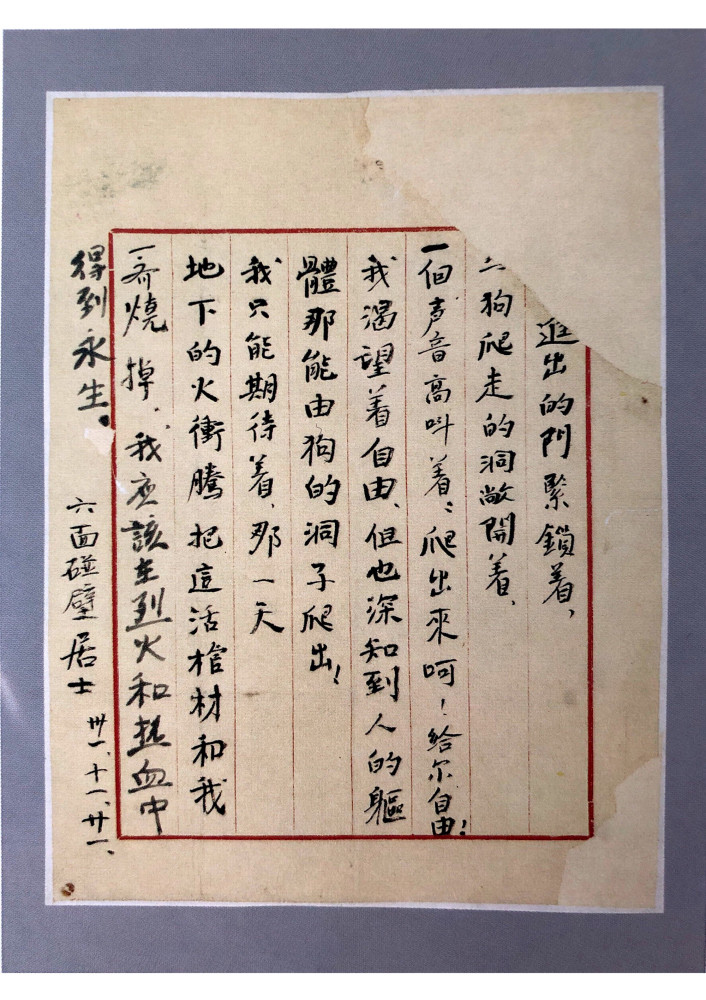 進出的門緊鎖着、
狗爬走的洞敞開着、
一個声音高呌着：爬出來呵！給尔自由！
我渴望着自由、但也深知到人的軀
體那能由狗的洞子爬出！
我只能期待着、那一天
地下的火衝騰把這活棺材和我
一齊燒掉、我应該在烈火和熱血中
得到永生。
六面碰壁居士
卅一、十一、廿一、